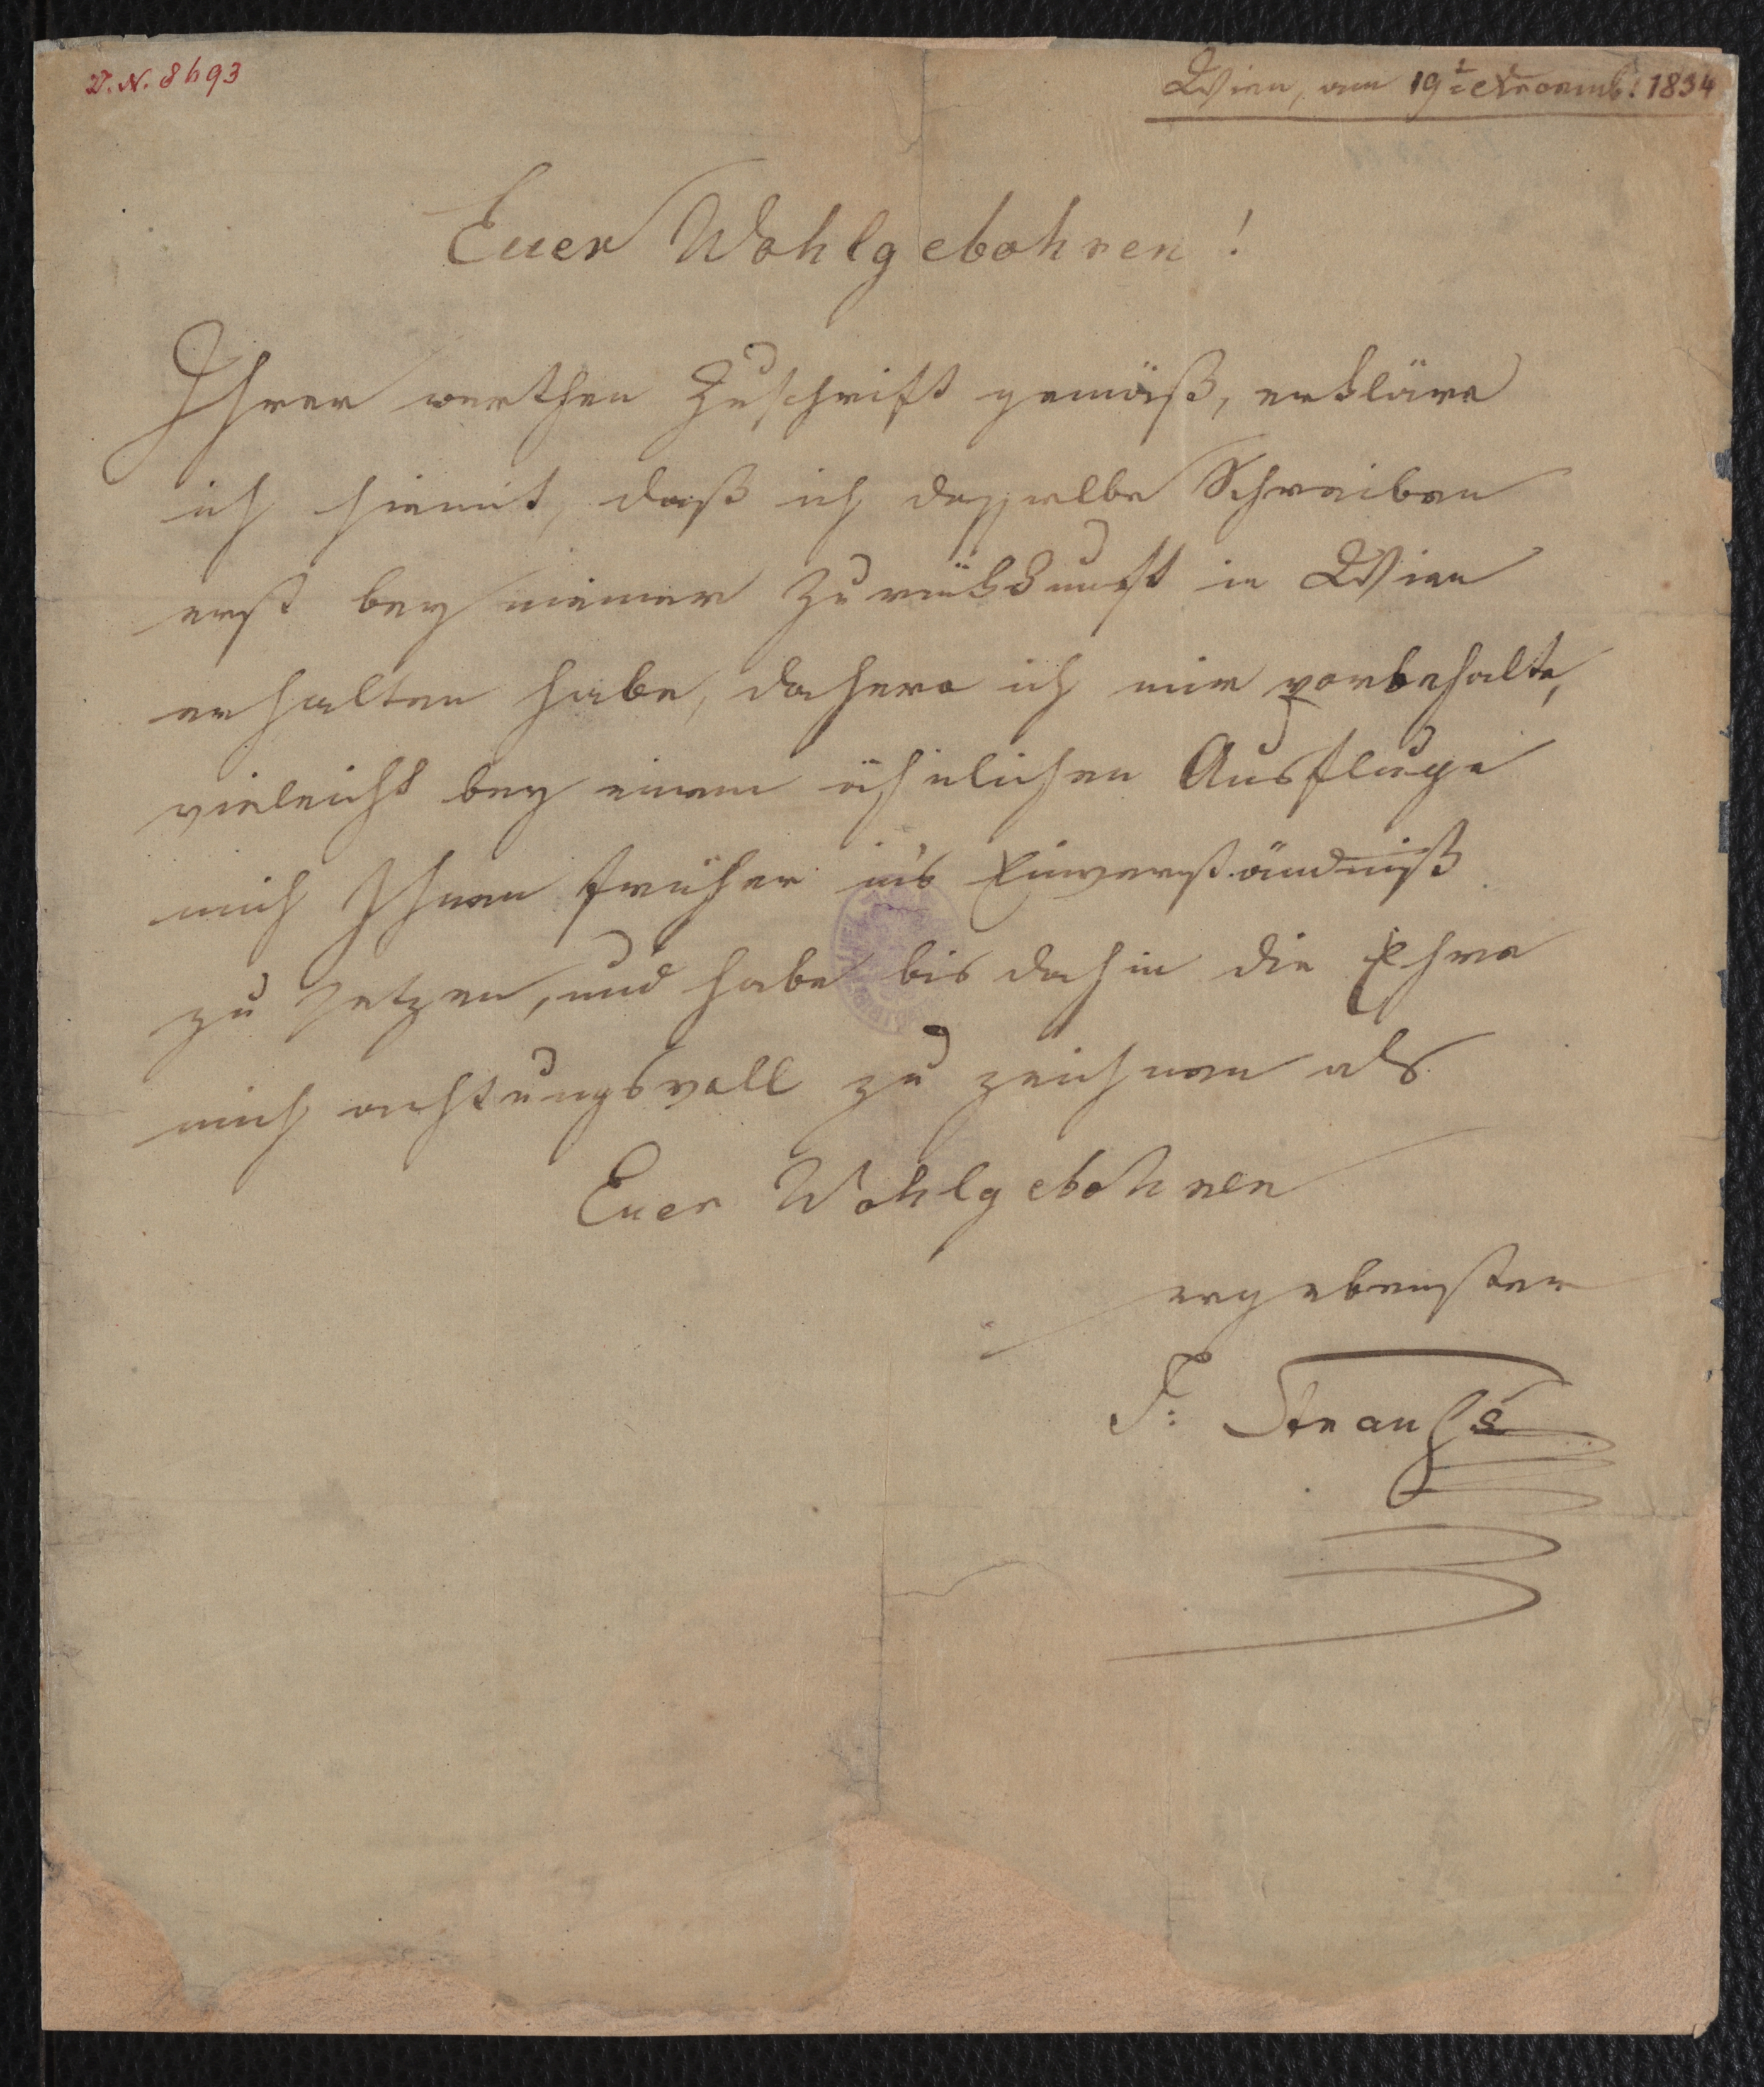 I. N. 8493
Wien, am 19t Novemb: 1834
Euer Wohlgebohren!
Ihrer werthen Zuschrift gemäß, erkläre
ich hiemit, daß ich dasselbe Schreiben
erst bey meiner Zurükkunft in Wien
erhalten habe, dahero ich mir vorbehalte,
vieleicht bey einem ähnlichen Ausfluge
mich Ihnen früher in's Einverständniß
zu setzen, und habe bis dahin die Ehre
mich achtungsvoll zu zeichnen als
Euer Wohlgebohren
ergebenster
J: Strauß